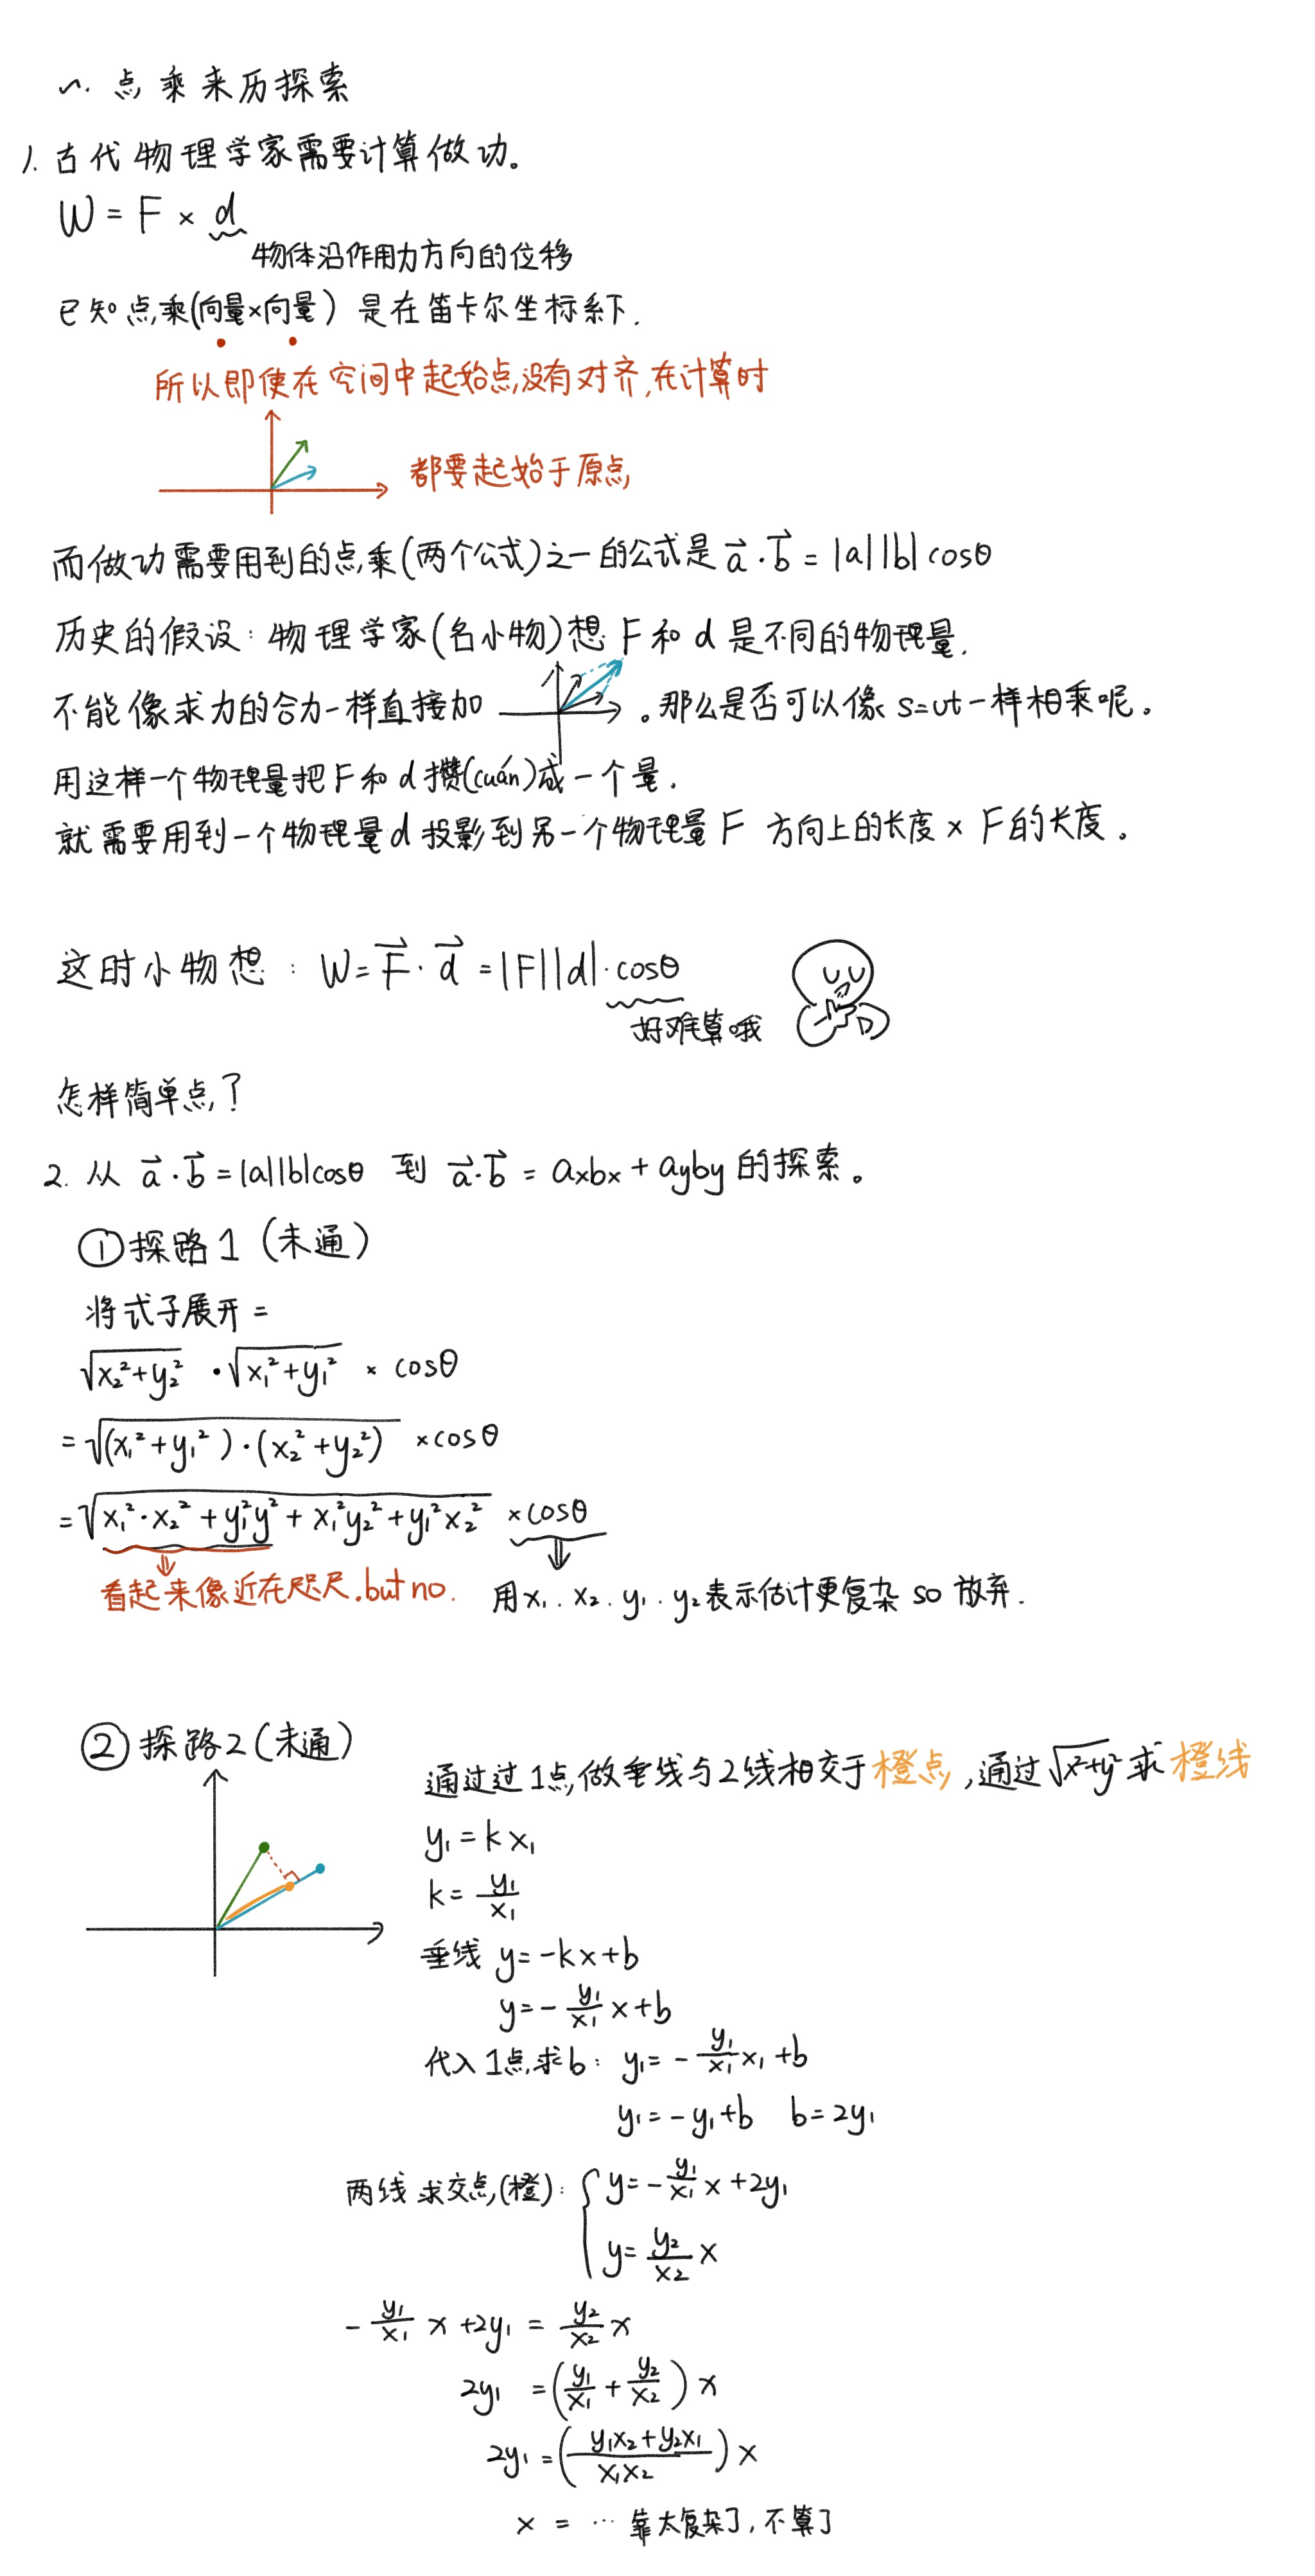 一. 点乘来历探索
1. 古代物理学家需要计算做功。
W = F × d
物体沿作用力方向的位移
已知点乘(向量×向量) 是在笛卡尔坐标系下.
所以即使在空间中起始点没有对齐,在计算时
都要起始于原点
而做功需要用到的点乘(两个公式)之一的公式是 a⃗·b⃗ = |a||b|cosθ
历史的假设: 物理学家(名小物)想 F和d是不同的物理量.
不能像求力的合力一样直接加 。那么是否可以像 s=vt 一样相乘呢。
用这样一个物理量把F和d攒(cuán)成一个量.
就需要用到一个物理量d投影到另一个物理量F 方向上的长度 × F的长度。
这时小物想: W = F⃗·d⃗ = |F||d|·cosθ
好难算哦
怎样简单点?
2. 从 a⃗·b⃗ = |a||b|cosθ 到 a⃗·b⃗ = axbx + ayby 的探索。
① 探路1 (未通)
将式子展开 =
√(x₂²+y₂²) · √(x₁²+y₁²) × cosθ
= √((x₁²+y₁²)·(x₂²+y₂²)) × cosθ
= √(x₁²·x₂² + y₁²y² + x₁²y₂² + y₁²x₂²) × cosθ
看起来像近在咫尺.but no.
用x₁.x₂.y₁.y₂表示估计更复杂 so 放弃.
② 探路2(未通)
通过过1点做垂线与2线相交于橙点,通过√(x²+y²)求橙线
y₁ = kx₁
k = y₁/x₁
垂线 y = -kx+b
y = -y₁/x₁ x+b
代入1点求b: y₁ = -y₁/x₁ x₁+b
y₁ = -y₁+b b = 2y₁
两线求交点(橙): { y = -y₁/x₁ x+2y₁
y = y₂/x₂ x
-y₁/x₁ x + 2y₁ = y₂/x₂ x
2y₁ = (y₁/x₁ + y₂/x₂) x
2y₁ = ((y₁x₂+y₂x₁)/(x₁x₂)) x
x = … 靠太复杂了,不算了